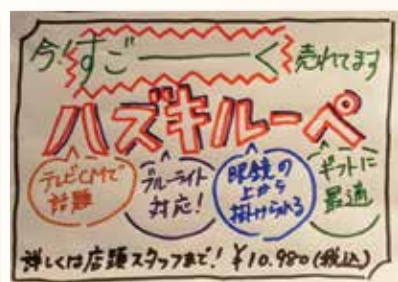 今!すご――く売れてます
ハズキルーペ
テレビCMで
話題
ブルーライト
対応!
眼鏡の
上から
掛けられる
ギフトに
最適
詳しくは店頭スタッフまで!¥10.980(税込)